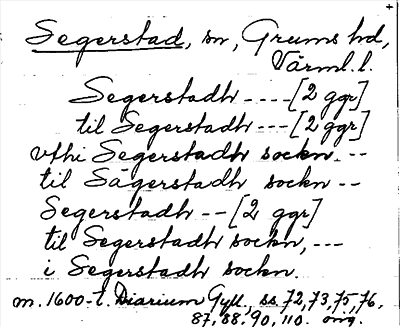 Segerstad, sn, Grums hd,
Värml. l.
Segerstadh ---- [2 ggr]
til Segerstadh --- [2 ggr]
vthi Segerstadh sockn. --
til Sägerstadh sockn --
Segerstadh -- [2 ggr]
til Segerstadh sockn, ---
i Segerstadh sockn.
m. 1600-t. Diarium Gyll., ss. 72, 73, 75, 76,
87, 88, 90, 110. orig.